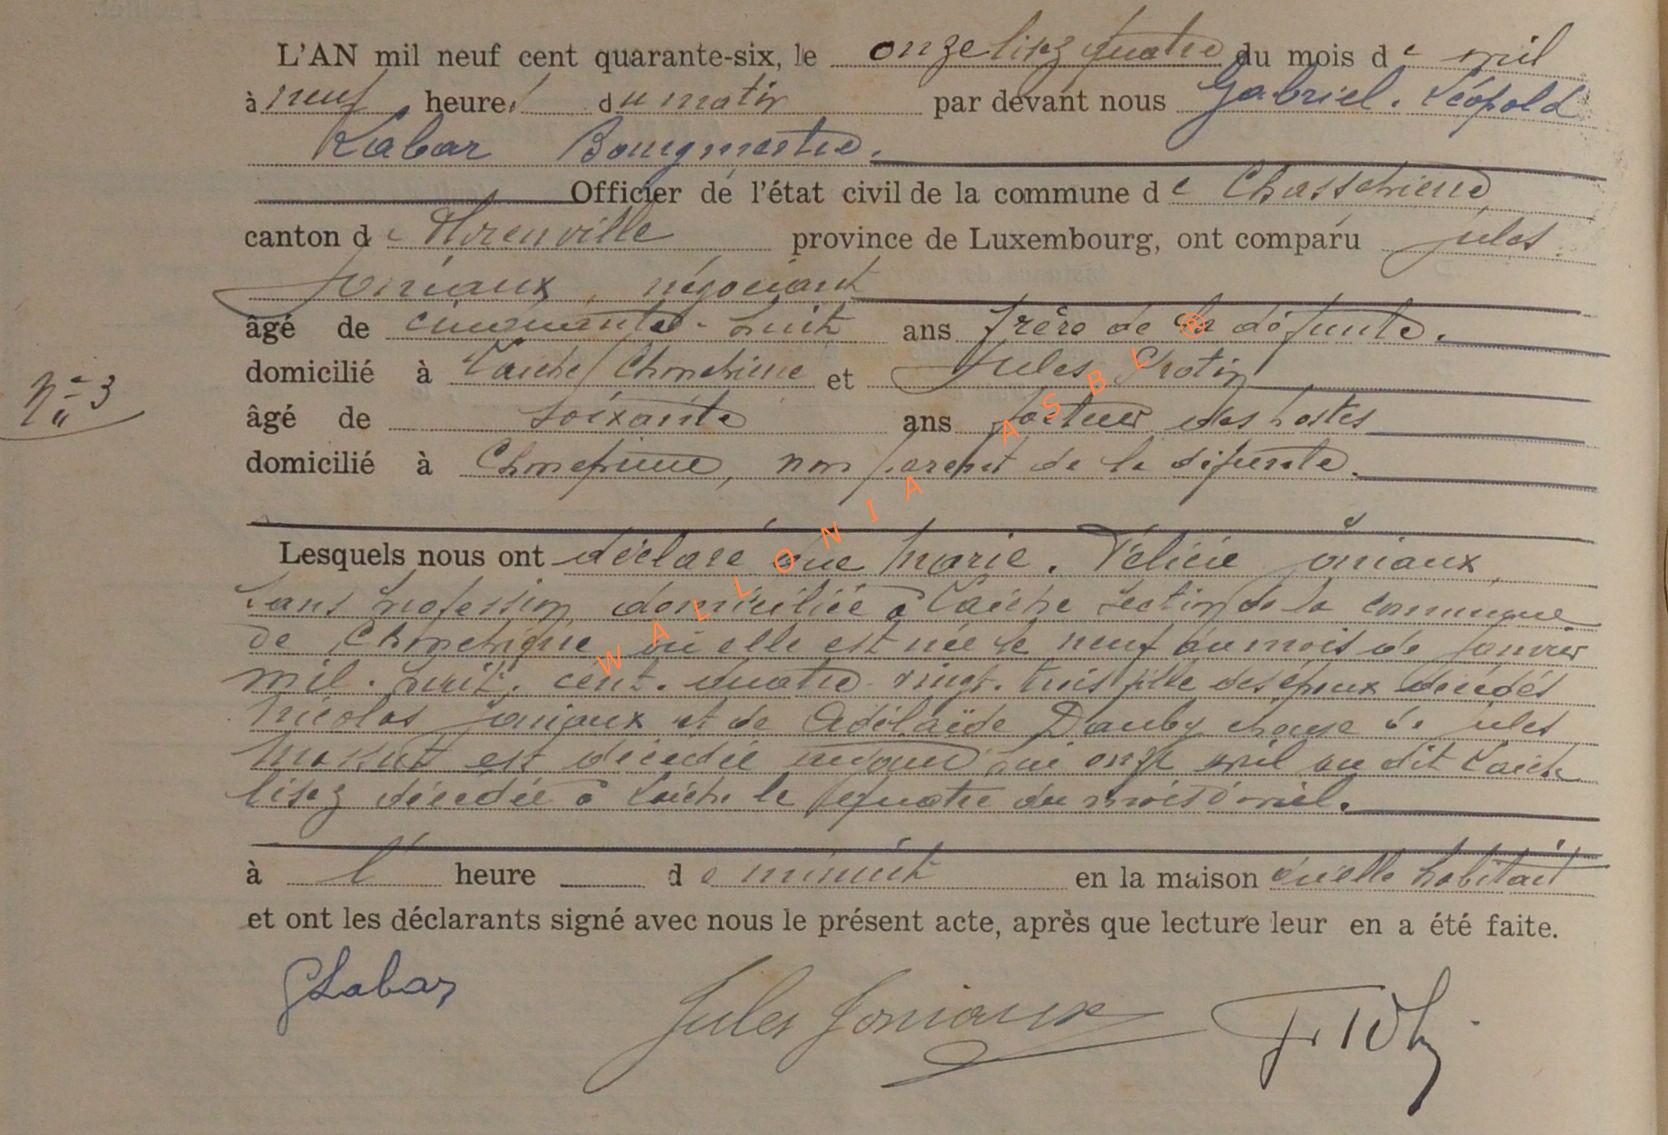 L'AN mil neuf cent quarante-six, le onze lisez quatre du mois de
à neuf heures du matin par devant nous Gabriel. Léopold
Labar Bourgmestre.
Officier de l'état civil de la commune de Chassepierre
canton de Florenville province de Luxembourg, ont comparu Jules
Joniaux, négociant
âgé de cinquante-huit ans frère de la défunte.
domicilié à Laiche / Chassepierre et Jules
N° 3
âgé de soixante ans facteur des postes
domicilié à Chassepierre, non parent de la défunte.
Lesquels nous ont déclaré que Marie. Félicie Joniaux,
sans profession, domiciliée à Laiche section de la commune
de Chassepierre où elle est née le neuf du mois de janvier
mil. huit. cent. quatre-vingt. trois fille des époux décédés
Nicolas Joniaux et de Adélaïde Dauby épouse de Jules
est décédée aujourd'hui onze avril au dit Laiche
lisez décédée à Laiche le quatre du mois d'avril.
à l' heure de minuit en la maison qu'elle habitait
et ont les déclarants signé avec nous le présent acte, après que lecture leur en a été faite.
GLabar Jules Joniaux
WALLONIA ASBL ®